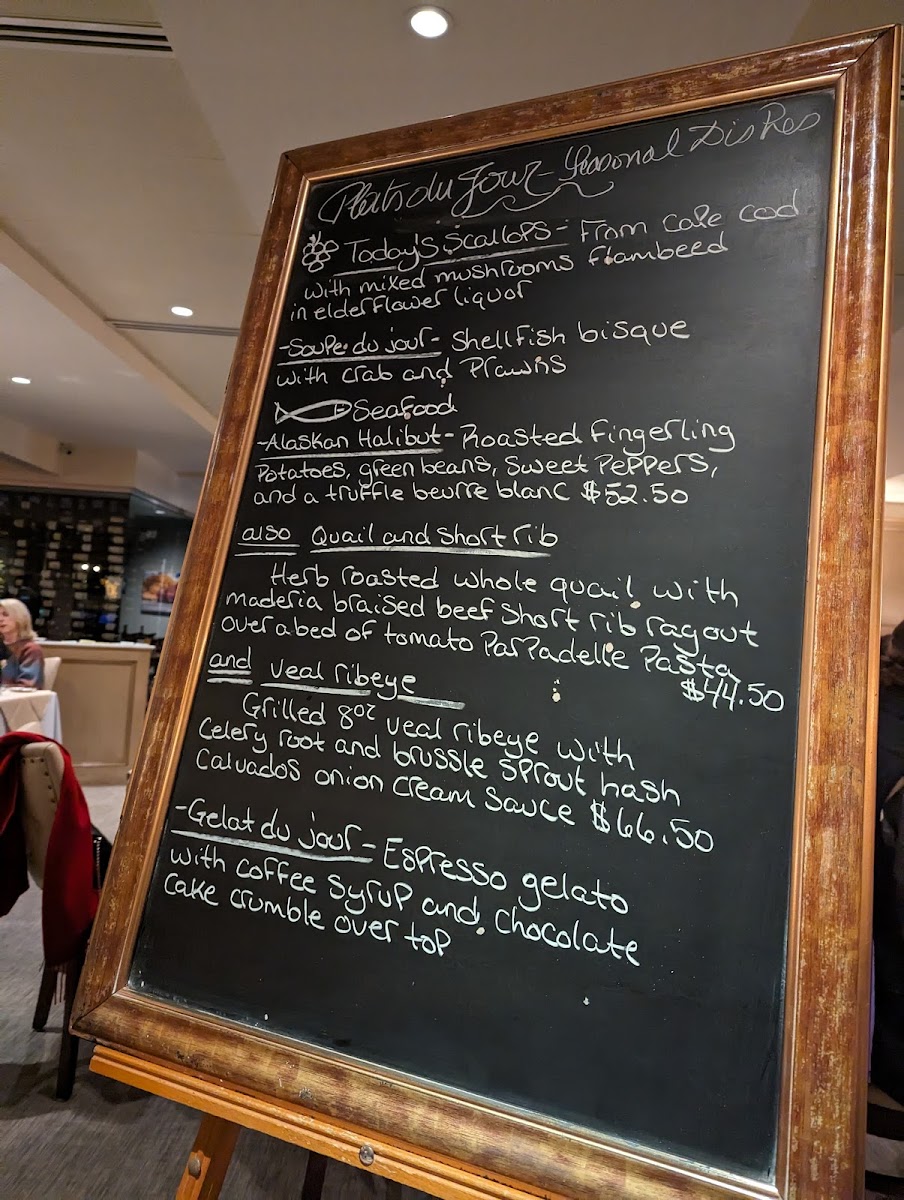 Plats du Jour - Seasonal Dishes
Today's Scallops - From Cape cod
with mixed mushrooms flambeed
in elderflower liquor
-Soupe du jour - Shellfish bisque
with crab and Prawns
Seafood
-Alaskan Halibut - Roasted Fingerling
Potatoes, green beans, Sweet Peppers,
and a truffle beurre blanc $52.50
also Quail and Short rib
Herb roasted whole quail with
maderia braised beef short rib ragout
over a bed of tomato Parpadelle Pasta
$44.50
and veal ribeye
Grilled 8oz veal ribeye with
Celery root and brussle sprout hash
Calvados onion cream Sauce $66.50
-Gelat du jour - Espresso gelato
with coffee syrup and chocolate
cake crumble over top